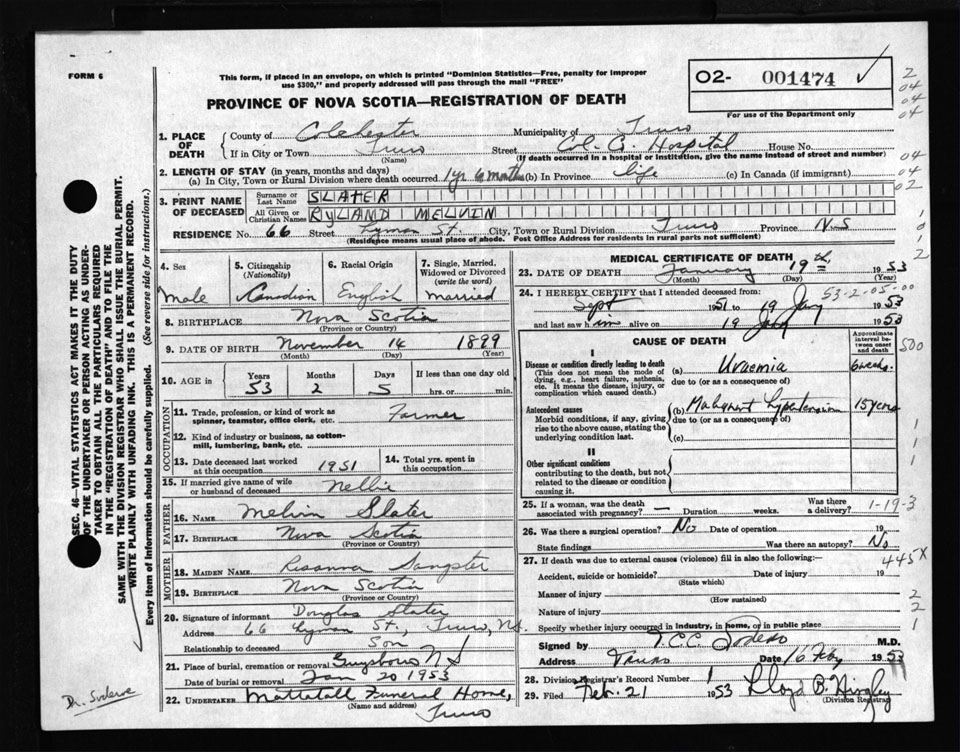 FORM 6
This form, if placed in an envelope, on which is printed "Dominion Statistics—Free, penalty for improper use $300," and properly addressed will pass through the mail "FREE"
PROVINCE OF NOVA SCOTIA—REGISTRATION OF DEATH
O2- 001474 ✓
For use of the Department only
2
04
04
04
04
02
1. PLACE OF DEATH
County of Colchester Municipality of Truro
If in City or Town Truro Street Col. Co. Hospital House No.
(Name) (If death occurred in a hospital or institution, give the name instead of street and number)
2. LENGTH OF STAY (in years, months and days)
(a) In City, Town or Rural Division where death occurred 1yr 6 months (b) In Province life (c) In Canada (if immigrant)
3. PRINT NAME OF DECEASED
Surname or Last Name SLATER
All Given or Christian Names RYLAND MELVIN
RESIDENCE No. 66 Street Lyman St. City, Town or Rural Division Truro Province N.S
(Residence means usual place of abode. Post Office Address for residents in rural parts not sufficient)
4. Sex Male
5. Citizenship (Nationality) Canadian
6. Racial Origin English
7. Single, Married, Widowed or Divorced (write the word) married
8. BIRTHPLACE Nova Scotia
(Province or Country)
9. DATE OF BIRTH November 14 1899
(Month) (Day) (Year)
10. AGE in Years Months Days If less than one day old
53 2 5 hrs. or min.
OCCUPATION
11. Trade, profession, or kind of work as spinner, teamster, office clerk, etc. Farmer
12. Kind of industry or business, as cotton-mill, lumbering, bank, etc.
13. Date deceased last worked at this occupation 1951
14. Total yrs. spent in this occupation
15. If married give name of wife or husband of deceased Nellie
FATHER
16. NAME Melvin Slater
17. BIRTHPLACE Nova Scotia
(Province or Country)
MOTHER
18. MAIDEN NAME Sangster
19. BIRTHPLACE Nova Scotia
(Province or Country)
20. Signature of informant Douglas Slater
Address 66 Lyman St., Truro, N.S.
Relationship to deceased Son
21. Place of burial, cremation or removal Guysboro N S
Date of burial or removal Jan 20 1953
22. UNDERTAKER Mattatall Funeral Home,
(Name and address) Truro
MEDICAL CERTIFICATE OF DEATH
23. DATE OF DEATH January 19th, 1953
(Month) (Day) (Year)
24. I HEREBY CERTIFY that I attended deceased from:
53-2-05-00
Sept 1951 to 19 Jany 1953
and last saw him alive on 19 Jany 1953
CAUSE OF DEATH
Approximate interval between onset and death
I
Disease or condition directly leading to death (This does not mean the mode of dying, e.g., heart failure, asthenia, etc. It means the disease, injury, or complication which caused death.)
(a) Uraemia 6 weeks.
due to (or as a consequence of)
Antecedent causes
Morbid conditions, if any, giving rise to the above cause, stating the underlying condition last.
(b) Malignant hypertension 15 years
due to (or as a consequence of)
(c)
II
Other significant conditions
contributing to the death, but not related to the disease or condition causing it.
25. If a woman, was the death associated with pregnancy? — Duration weeks. Was there a delivery?
1-19-3
26. Was there a surgical operation? No Date of operation 19
State findings Was there an autopsy? No
27. If death was due to external causes (violence) fill in also the following:—
445X
Accident, suicide or homicide? Date of injury 19
(State which)
Manner of injury
(How sustained)
Nature of injury
Specify whether injury occurred in industry, in home, or in public place
Signed by M.D.
Address Truro Date 16 Feby 1953
28. Division Registrar's Record Number 1
29. Filed Feb. 21 1953 Lloyd B.
(Division Registrar)
500
1
1
2
2
1
SEC. 46—VITAL STATISTICS ACT MAKES IT THE DUTY OF THE UNDERTAKER OR PERSON ACTING AS UNDERTAKER TO OBTAIN ALL THE PARTICULARS REQUIRED IN THE "REGISTRATION OF DEATH" AND TO FILE THE SAME WITH THE DIVISION REGISTRAR WHO SHALL ISSUE THE BURIAL PERMIT.
WRITE PLAINLY WITH UNFADING INK. THIS IS A PERMANENT RECORD.
Every item of Information should be carefully supplied. (See reverse side for instructions.)